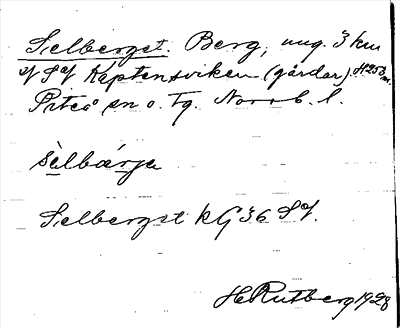 Selberget. Berg, ung. 3 km
v/ SV Kaptensviken (gårdar). H 256 m.
Piteå sn o. Tg. Norrb. l.
sèlbærjə
Selberget kG 36 SV.
H Rutberg 1928